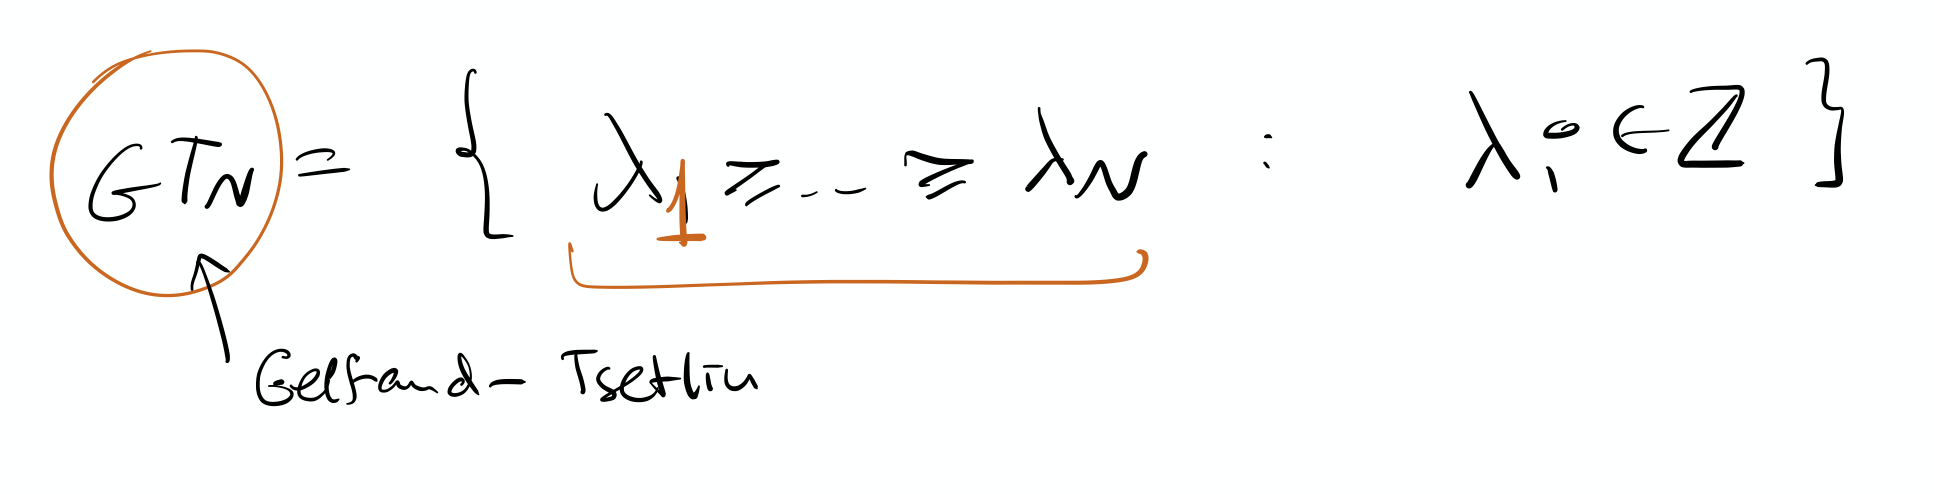 GT_N = { λ_1 ≥ ... ≥ λ_N : λ_i ∈ ℤ }
Gelfand - Tsetlin